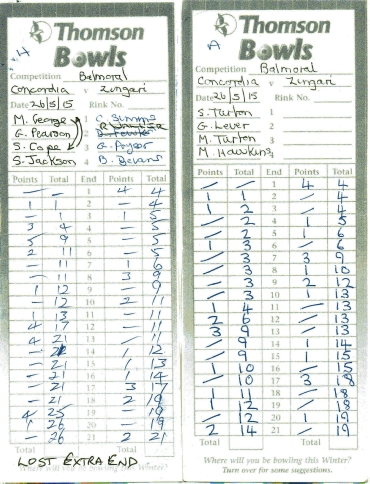 H
Thomson
Bowls
Competition Balmoral
Concordia v Zingari
Date 26/5/15 Rink No.
M. George 1 C. Simms
G. Pearson 2
S. Cape 3 G. Pryer
S. Jackson 4 B. Bevans
Points Total End Points Total
— — 1 4 4
1 1 2 — 4
— 1 3 1 5
3 4 4 — 5
5 9 5 — 5
2 11 6 — 5
— 11 7 1 6
— 11 8 3 9
1 12 9 — 9
— 12 10 2 11
1 13 11 — 11
4 17 12 — 11
4 21 13 — 11
— 21 14 1 12
— 21 15 1 13
— 21 16 1 14
— 21 17 3 17
— 21 18 2 19
4 25 19 — 19
1 26 20 — 19
— 26 21 2 21
Total Total
LOST EXTRA END
Where will you be bowling this Winter?
A
Thomson
Bowls
Competition Balmoral
Concordia v Zingari
Date 26/5/15 Rink No.
S. Turton 1
G. Lever 2
M. Turton 3
M. Hawkins 4
Points Total End Points Total
/ / 1 4 4
1 1 2 / 4
1 2 3 / 4
/ 2 4 1 5
/ 2 5 1 6
1 3 6 / 6
/ 3 7 3 9
/ 3 8 1 10
/ 3 9 2 12
/ 3 10 1 13
1 4 11 / 13
2 6 12 / 13
3 9 13 / 13
/ 9 14 1 14
/ 9 15 1 15
1 10 16 / 15
/ 10 17 3 18
1 11 18 / 18
1 12 19 / 18
/ 12 20 1 19
2 14 21 / 19
Total Total
Where will you be bowling this Winter?
Turn over for some suggestions.